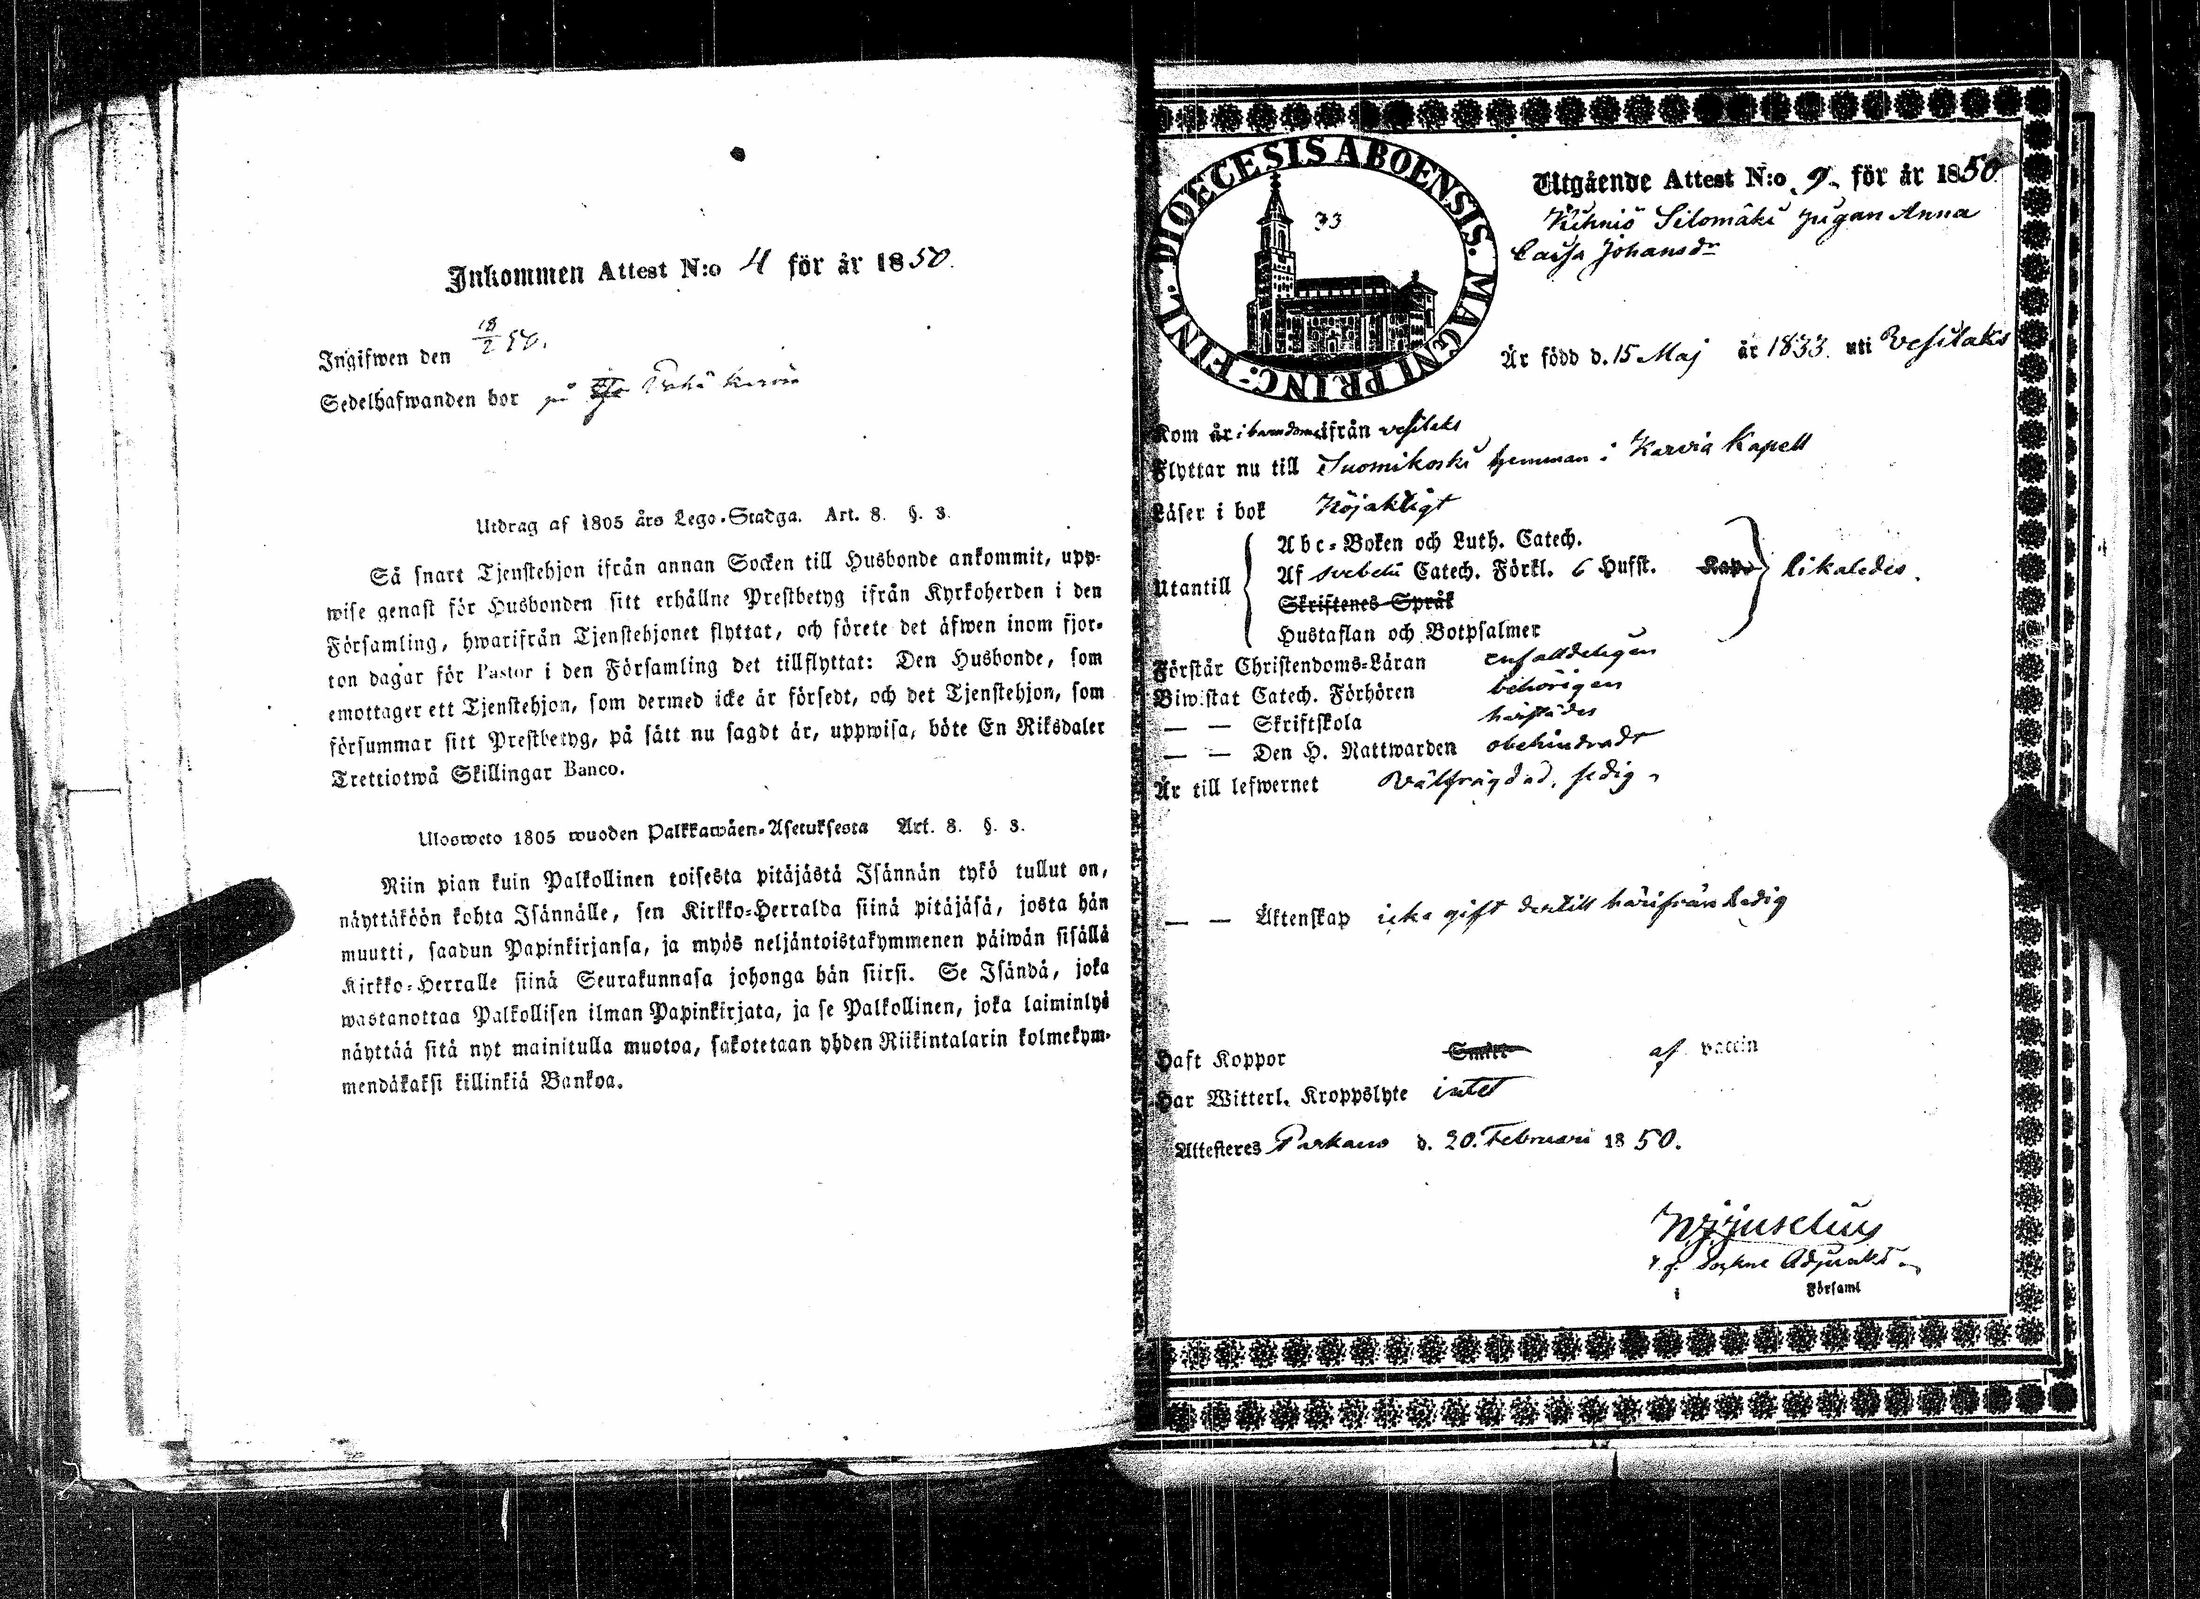 Inkommen Attest N:o 4 för år 1850.
Ingifwen den 18/2 50.
Sedelhafwanden bor på
Utdrag af 1805 års Lego-Stadga. Art. 8. §. 3.
Så snart Tjenstehjon ifrån annan Socken till Husbonde ankommit, upp-
wise genast för Husbonden sitt erhållne Prestbetyg ifrån Kyrkoherden i den
Församling, hwarifrån Tjenstehjonet flyttat, och förete det äfwen inom fjor-
ton dagar för Pastor i den Församling det tillflyttat: Den Husbonde, som
emottager ett Tjenstehjon, som dermed icke är försedt, och det Tjenstehjon, som
försummar sitt Prestbetyg, på sätt nu sagdt är, uppwisa, böte En Riksdaler
Trettiotwå Skillingar Banco.
Ulosweto 1805 wuoden Palkkawäen-Asetuksesta Art. 8. §. 3.
Niin pian kuin Palkollinen toisesta pitäjästä Isännän tykö tullut on,
näyttäköön kohta Isännälle, sen Kirkko-Herralda siinä pitäjäsä, josta hän
muutti, saadun Papinkirjansa, ja myös neljäntoistakymmenen päiwän sisällä
Kirkko-Herralle siinä Seurakunnasa johonga hän siirsi. Se Isändä, joka
wastanottaa Palkollisen ilman Papinkirjata, ja se Palkollinen, joka laiminlyö
näyttää sitä nyt mainitulla muotoa, sakotetaan yhden Riikintalarin kolmekym-
mendäkaksi killinkiä Bankoa.
DIOECESIS ABOENSIS. MAGNI PRINC: FINL.
33
Utgående Attest N:o 9 för år 1850
Kihniö Silomäki pigan Anna
Caisa Johansdr
Är född d. 15 Maj år 1833. uti Vesilaks
Kom år i barndomen ifrån Vesilaks
Flyttar nu till Suomikoski hemman i Karvia Kapell
Läser i bok Nöjaktigt
Utantill
Abc-Boken och Luth. Catech.
Af Svebelii Catech. Förkl. 6 Hufst. Kap. likaledes.
Skriftenes Språk
Hustaflan och Botpsalmer
Förstår Christendoms-Läran enfalldeligen
Biwistat Catech. Förhören behörigen
— — Skriftskola härstädes
— — Den H. Nattwarden obehindradt
Är till lefwernet Välfrägdad, sedig
— — Äktenskap icke gift dertill härifrån ledig
Haft Koppor af vaccin
Har Witterl. Kroppslyte intet
Attesteras Parkano d. 20. Februari 1850.
Adjunkt
i Församl